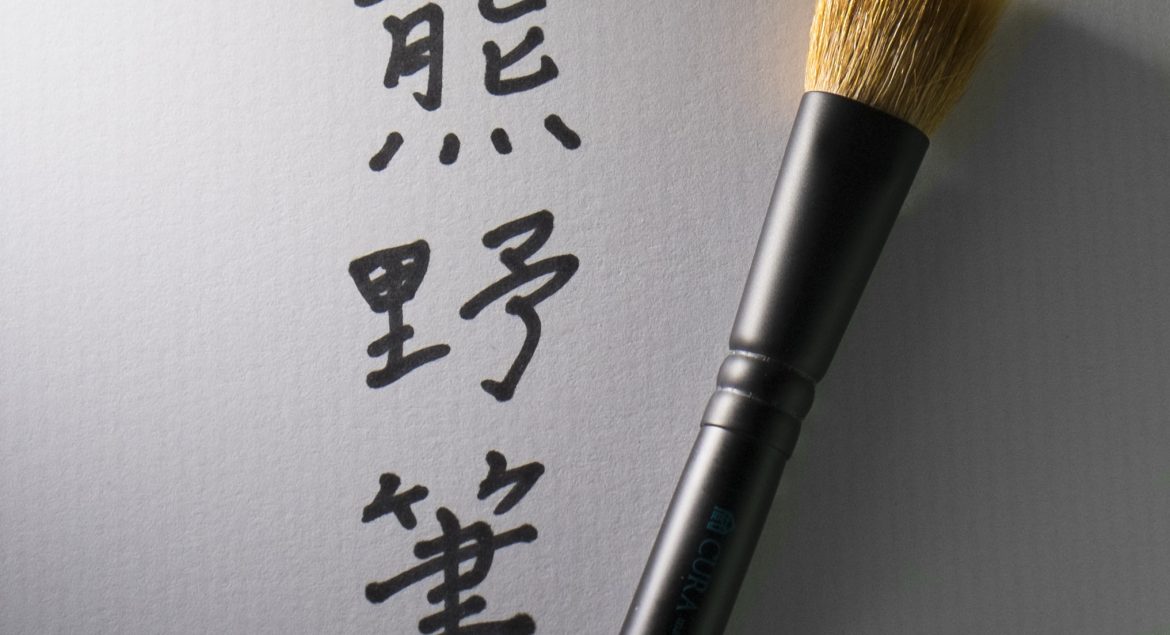 熊野筆
CURA